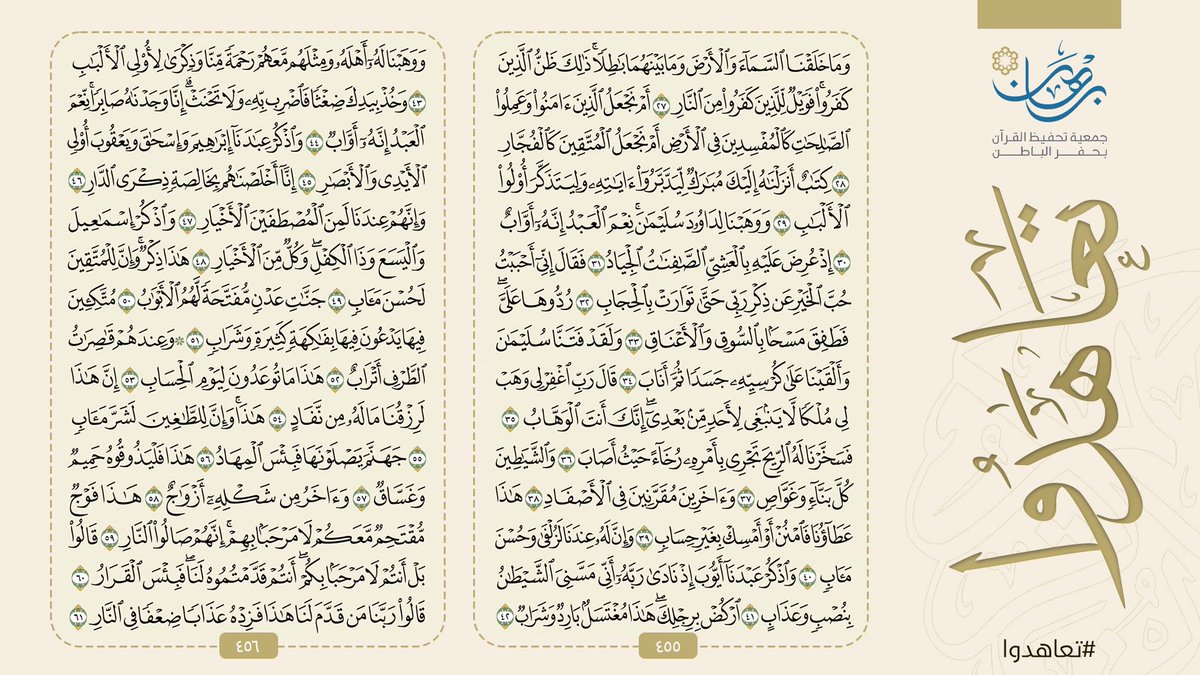 برهان
جمعية تحفيظ القرآن
بحفر الباطن
تعاهدوا
#تعاهدوا
وَمَا خَلَقْنَا ٱلسَّمَآءَ وَٱلْأَرْضَ وَمَا بَيْنَهُمَا بَـٰطِلًا ۚ ذَٰلِكَ ظَنُّ ٱلَّذِينَ
كَفَرُوا۟ ۚ فَوَيْلٌ لِّلَّذِينَ كَفَرُوا۟ مِنَ ٱلنَّارِ ٢٧ أَمْ نَجْعَلُ ٱلَّذِينَ ءَامَنُوا۟ وَعَمِلُوا۟
ٱلصَّـٰلِحَـٰتِ كَٱلْمُفْسِدِينَ فِى ٱلْأَرْضِ أَمْ نَجْعَلُ ٱلْمُتَّقِينَ كَٱلْفُجَّارِ
٢٨ كِتَـٰبٌ أَنزَلْنَـٰهُ إِلَيْكَ مُبَـٰرَكٌ لِّيَدَّبَّرُوٓا۟ ءَايَـٰتِهِۦ وَلِيَتَذَكَّرَ أُو۟لُوا۟
ٱلْأَلْبَـٰبِ ٢٩ وَوَهَبْنَا لِدَاوُۥدَ سُلَيْمَـٰنَ ۚ نِعْمَ ٱلْعَبْدُ ۖ إِنَّهُۥٓ أَوَّابٌ
٣٠ إِذْ عُرِضَ عَلَيْهِ بِٱلْعَشِىِّ ٱلصَّـٰفِنَـٰتُ ٱلْجِيَادُ ٣١ فَقَالَ إِنِّىٓ أَحْبَبْتُ
حُبَّ ٱلْخَيْرِ عَن ذِكْرِ رَبِّى حَتَّىٰ تَوَارَتْ بِٱلْحِجَابِ ٣٢ رُدُّوهَا عَلَىَّ ۖ
فَطَفِقَ مَسْحًۢا بِٱلسُّوقِ وَٱلْأَعْنَاقِ ٣٣ وَلَقَدْ فَتَنَّا سُلَيْمَـٰنَ
وَأَلْقَيْنَا عَلَىٰ كُرْسِيِّهِۦ جَسَدًا ثُمَّ أَنَابَ ٣٤ قَالَ رَبِّ ٱغْفِرْ لِى وَهَبْ
لِى مُلْكًا لَّا يَنۢبَغِى لِأَحَدٍ مِّنۢ بَعْدِىٓ ۖ إِنَّكَ أَنتَ ٱلْوَهَّابُ ٣٥
فَسَخَّرْنَا لَهُ ٱلرِّيحَ تَجْرِى بِأَمْرِهِۦ رُخَآءً حَيْثُ أَصَابَ ٣٦ وَٱلشَّيَـٰطِينَ
كُلَّ بَنَّآءٍ وَغَوَّاصٍ ٣٧ وَءَاخَرِينَ مُقَرَّنِينَ فِى ٱلْأَصْفَادِ ٣٨ هَـٰذَا
عَطَآؤُنَا فَٱمْنُنْ أَوْ أَمْسِكْ بِغَيْرِ حِسَابٍ ٣٩ وَإِنَّ لَهُۥ عِندَنَا لَزُلْفَىٰ وَحُسْنَ
مَـَٔابٍ ٤٠ وَٱذْكُرْ عَبْدَنَآ أَيُّوبَ إِذْ نَادَىٰ رَبَّهُۥٓ أَنِّى مَسَّنِىَ ٱلشَّيْطَـٰنُ
بِنُصْبٍ وَعَذَابٍ ٤١ ٱرْكُضْ بِرِجْلِكَ ۖ هَـٰذَا مُغْتَسَلٌۢ بَارِدٌ وَشَرَابٌ ٤٢
٤٥٥
وَوَهَبْنَا لَهُۥٓ أَهْلَهُۥ وَمِثْلَهُم مَّعَهُمْ رَحْمَةً مِّنَّا وَذِكْرَىٰ لِأُو۟لِى ٱلْأَلْبَـٰبِ
٤٣ وَخُذْ بِيَدِكَ ضِغْثًا فَٱضْرِب بِّهِۦ وَلَا تَحْنَثْ ۗ إِنَّا وَجَدْنَـٰهُ صَابِرًا ۚ نِّعْمَ
ٱلْعَبْدُ ۖ إِنَّهُۥٓ أَوَّابٌ ٤٤ وَٱذْكُرْ عِبَـٰدَنَآ إِبْرَٰهِيمَ وَإِسْحَـٰقَ وَيَعْقُوبَ أُو۟لِى
ٱلْأَيْدِى وَٱلْأَبْصَـٰرِ ٤٥ إِنَّآ أَخْلَصْنَـٰهُم بِخَالِصَةٍ ذِكْرَى ٱلدَّارِ ٤٦
وَإِنَّهُمْ عِندَنَا لَمِنَ ٱلْمُصْطَفَيْنَ ٱلْأَخْيَارِ ٤٧ وَٱذْكُرْ إِسْمَـٰعِيلَ
وَٱلْيَسَعَ وَذَا ٱلْكِفْلِ ۖ وَكُلٌّ مِّنَ ٱلْأَخْيَارِ ٤٨ هَـٰذَا ذِكْرٌ ۚ وَإِنَّ لِلْمُتَّقِينَ
لَحُسْنَ مَـَٔابٍ ٤٩ جَنَّـٰتِ عَدْنٍ مُّفَتَّحَةً لَّهُمُ ٱلْأَبْوَٰبُ ٥٠ مُتَّكِـِٔينَ
فِيهَا يَدْعُونَ فِيهَا بِفَـٰكِهَةٍ كَثِيرَةٍ وَشَرَابٍ ٥١ ۞ وَعِندَهُمْ قَـٰصِرَٰتُ
ٱلطَّرْفِ أَتْرَابٌ ٥٢ هَـٰذَا مَا تُوعَدُونَ لِيَوْمِ ٱلْحِسَابِ ٥٣ إِنَّ هَـٰذَا
لَرِزْقُنَا مَا لَهُۥ مِن نَّفَادٍ ٥٤ هَـٰذَا ۚ وَإِنَّ لِلطَّـٰغِينَ لَشَرَّ مَـَٔابٍ
٥٥ جَهَنَّمَ يَصْلَوْنَهَا فَبِئْسَ ٱلْمِهَادُ ٥٦ هَـٰذَا فَلْيَذُوقُوهُ حَمِيمٌ
وَغَسَّاقٌ ٥٧ وَءَاخَرُ مِن شَكْلِهِۦٓ أَزْوَٰجٌ ٥٨ هَـٰذَا فَوْجٌ
مُّقْتَحِمٌ مَّعَكُمْ ۖ لَا مَرْحَبًۢا بِهِمْ ۚ إِنَّهُمْ صَالُوا۟ ٱلنَّارِ ٥٩ قَالُوا۟
بَلْ أَنتُمْ لَا مَرْحَبًۢا بِكُمْ ۖ أَنتُمْ قَدَّمْتُمُوهُ لَنَا ۖ فَبِئْسَ ٱلْقَرَارُ ٦٠
قَالُوا۟ رَبَّنَا مَن قَدَّمَ لَنَا هَـٰذَا فَزِدْهُ عَذَابًا ضِعْفًا فِى ٱلنَّارِ ٦١
٤٥٦